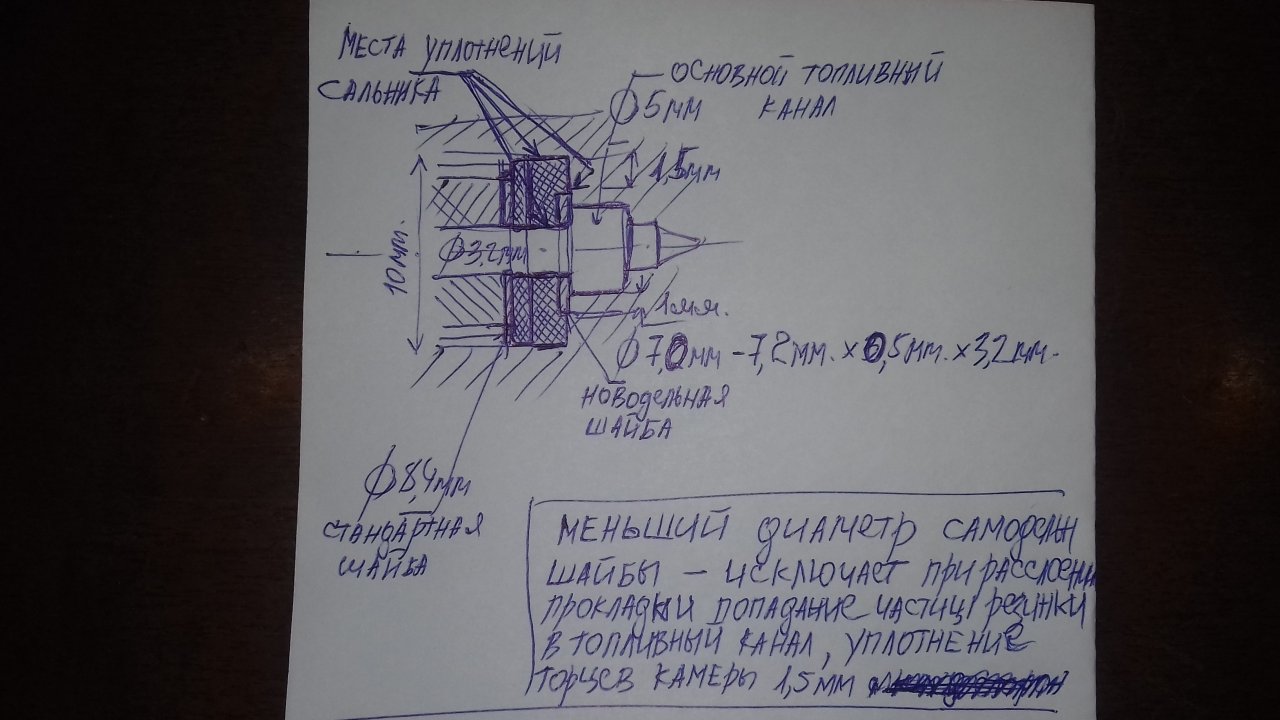 МЕСТА УПЛОТНЕНИЙ
САЛЬНИКА
ОСНОВНОЙ ТОПЛИВНЫЙ
КАНАЛ
Ø5мм
1,5мм
10мм.
Ø3,2мм
1мм.
Ø7,0мм - 7,2мм. × 0,5мм. × 3,2мм.
НОВОДЕЛЬНАЯ
ШАЙБА
Ø8,4мм
СТАНДАРТНАЯ
ШАЙБА
МЕНЬШИЙ ДИАМЕТР САМОДЕЛЬН
ШАЙБЫ – ИСКЛЮЧАЕТ ПРИ РАССЛОЕНИИ
ПРОКЛАДКИ ПОПАДАНИЕ ЧАСТИЦ РЕЗИНКИ
В ТОПЛИВНЫЙ КАНАЛ, УПЛОТНЕНИЕ
ТОРЦЕВ КАМЕРЫ 1,5ММ